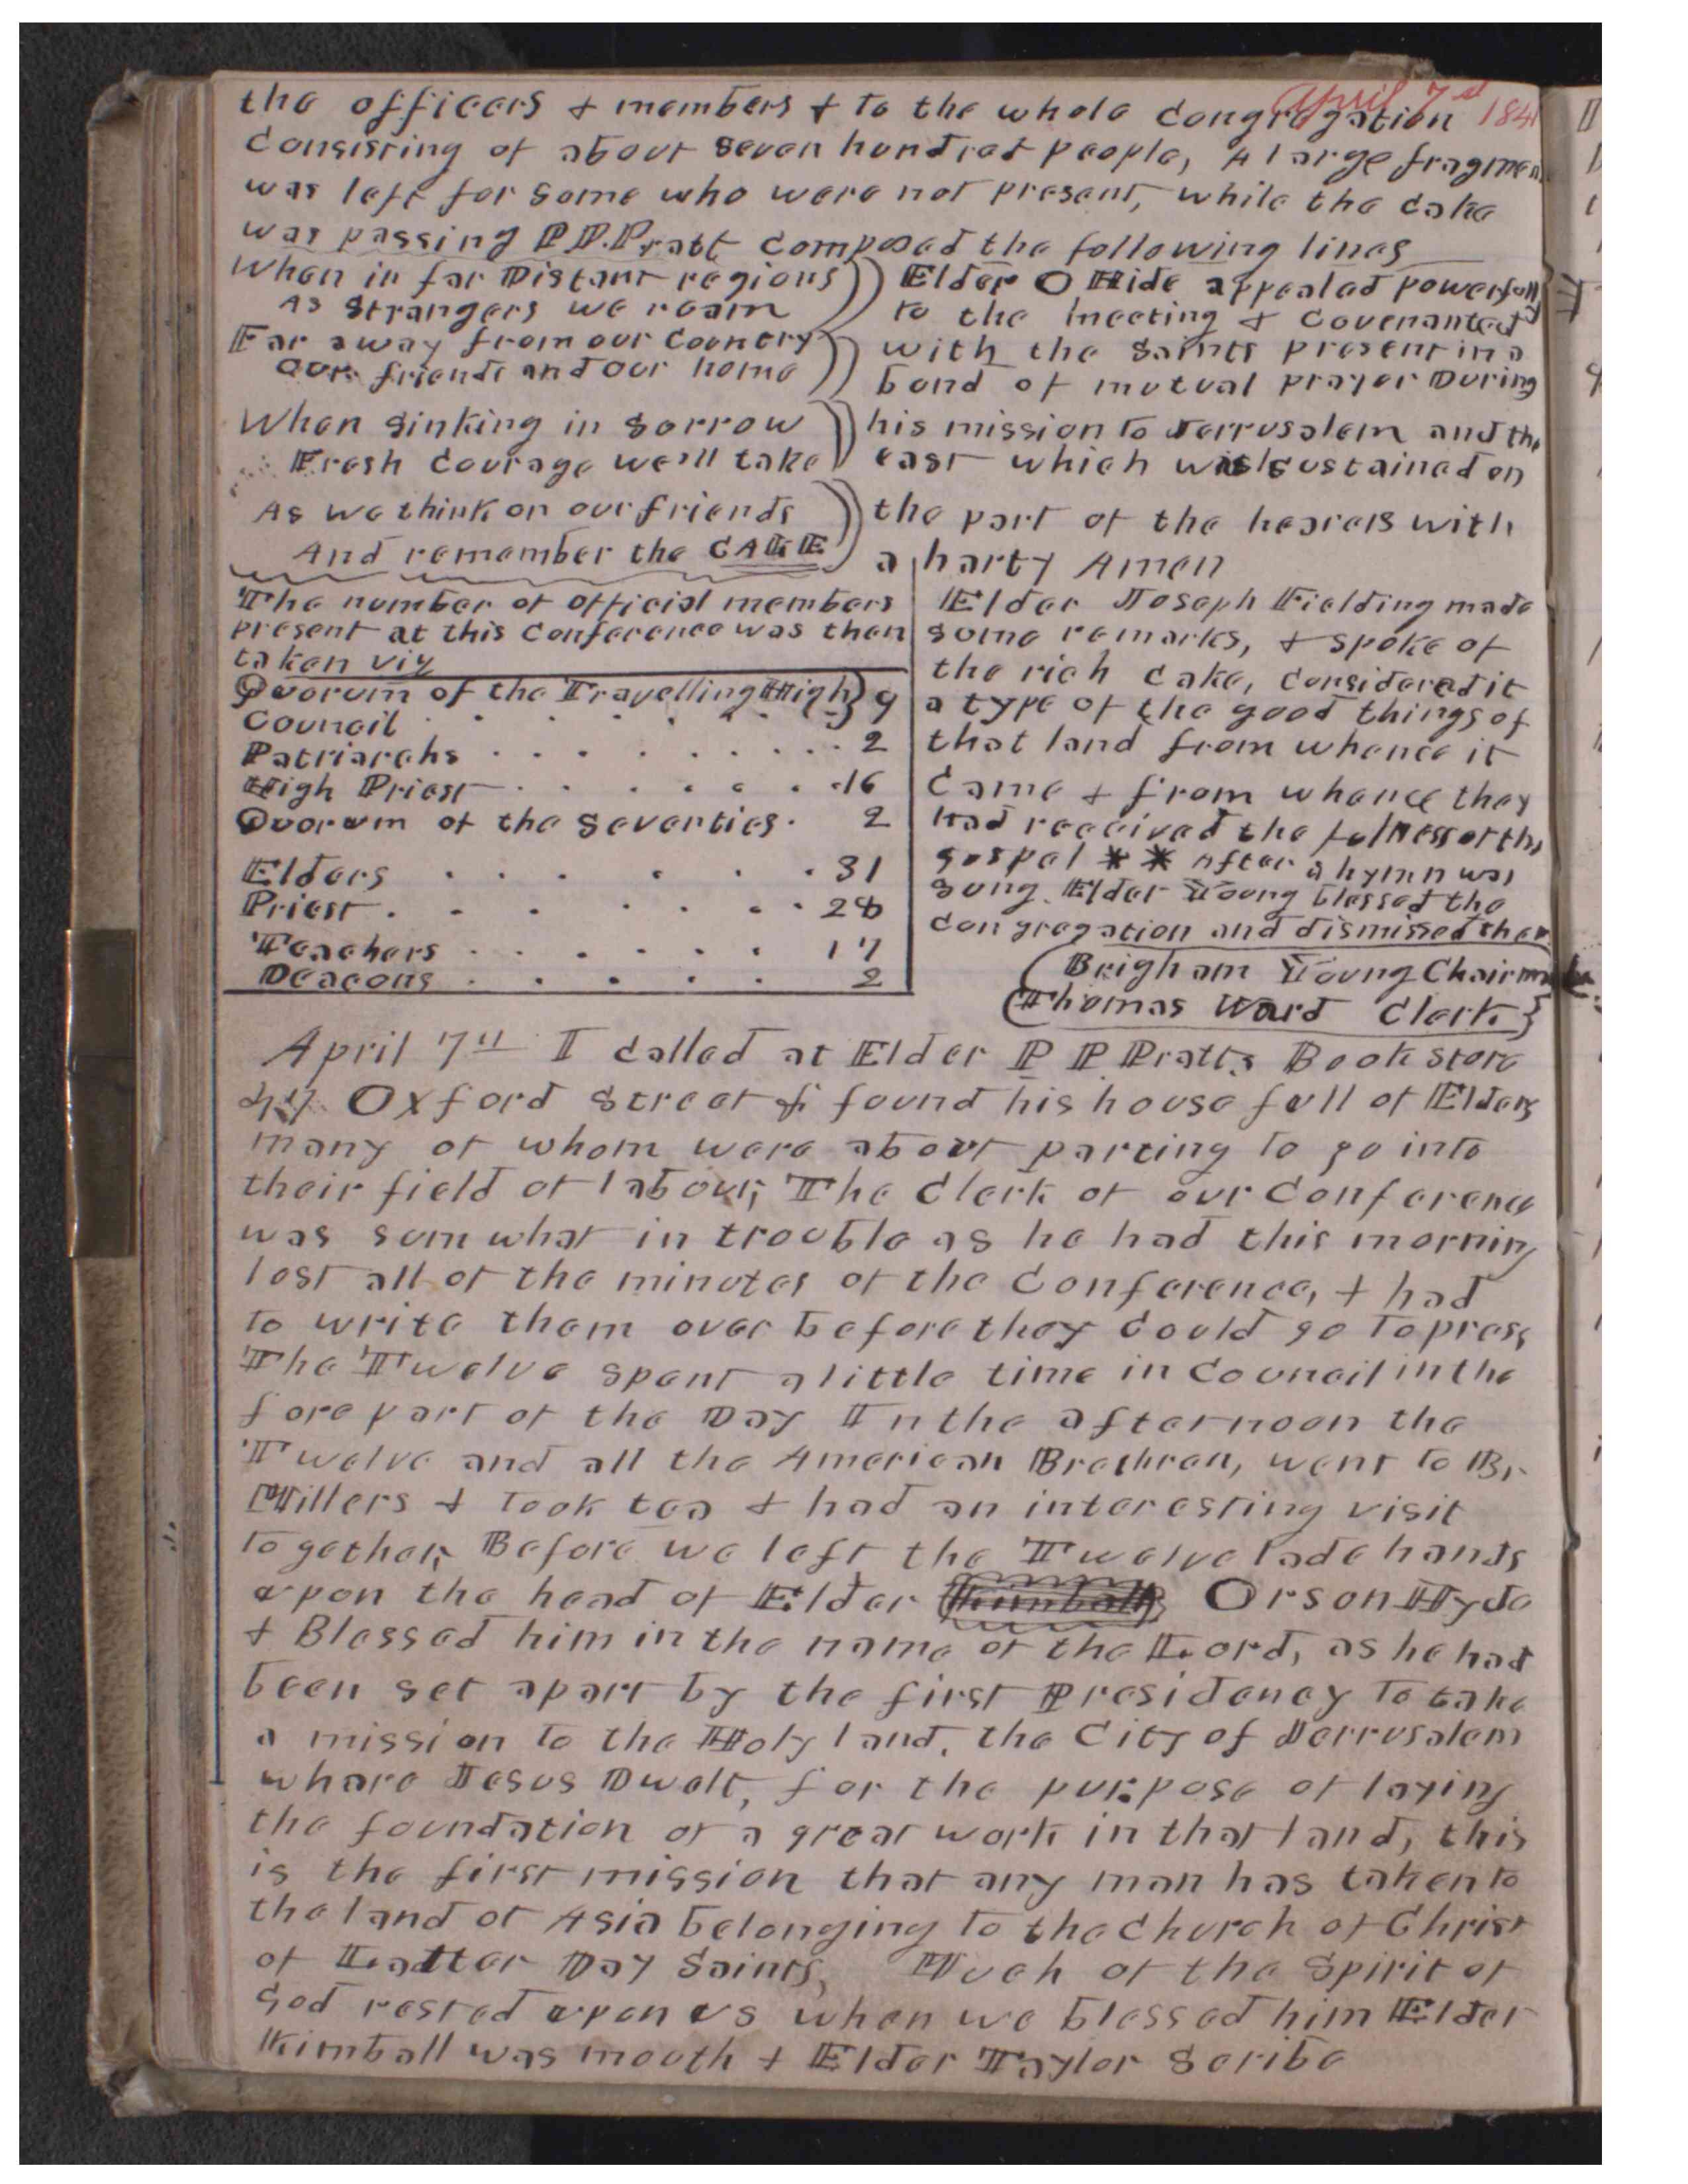 April 7th 1841
the officers & members & to the whole congregation
consisting of about seven hundred people, A large fragmen
was left for some who were not present, while the cake
was passing P P. Pratt composed the following lines
When in far Distant regions
As Strangers we roam
Far away from our Country
Our friends and our home
When sinking in sorrow
Fresh courage we'll take
As we think on our friends
And remember the CAKE
Elder O Hide appealed powerfully
to the meeting & covenanted
with the Saints present in a
bond of mutual prayer During
his mission to Jerrusalem and the
east which was sustained on
the part of the hearers with
a harty Amen
The number of official members
present at this Conference was then
taken viz
Quorum of the Travelling High } 9
Council . . . . . .
Patriarchs . . . . . . . . 2
High Priest . . . . . . 16
Quorum of the Seventies . 2
Elders . . . . . . 31
Priest . . . . . . . 28
Teachers . . . . . . 17
Deacons . . . . . 2
Elder Joseph Fielding made
some remarks, & spoke of
the rich cake, considered it
a type of the good things of
that land from whence it
came & from whence they
had received the fulness of the
gospel * * After a hymn was
sung Elder Young blessed the
congregation and dismissed them
Brigham Young Chairman
Thomas Ward Clerk }
April 7th I called at Elder P P Pratts Book store
47 Oxford Street & found his house full of Elders
many of whom were about parting to go into
their field of labour, The Clerk of our Conference
was somwhat in trouble as he had this morning
lost all of the minutes of the Conference, & had
to write them over before they could go to press
The Twelve spent a little time in Council in the
fore part of the Day In the afternoon the
Twelve and all the American Brethren, went to Br
Millers & took tea & had an interesting visit
together, Before we left the Twelve lade hands
upon the head of Elder Kimball Orson Hyde
& Blessed him in the name of the Lord, as he had
been set apart by the first Presidency to take
a mission to the Holy land, the City of Jerrusalem
whare Jesus Dwelt, for the purpose of laying
the foundation of a great work in that land, this
is the first mission that any man has taken to
the land of Asia belonging to the Church of Christ
of Latter Day Saints, Much of the Spirit of
God rested upon us when we blessed him Elder
Kimball was mouth & Elder Taylor Scribe